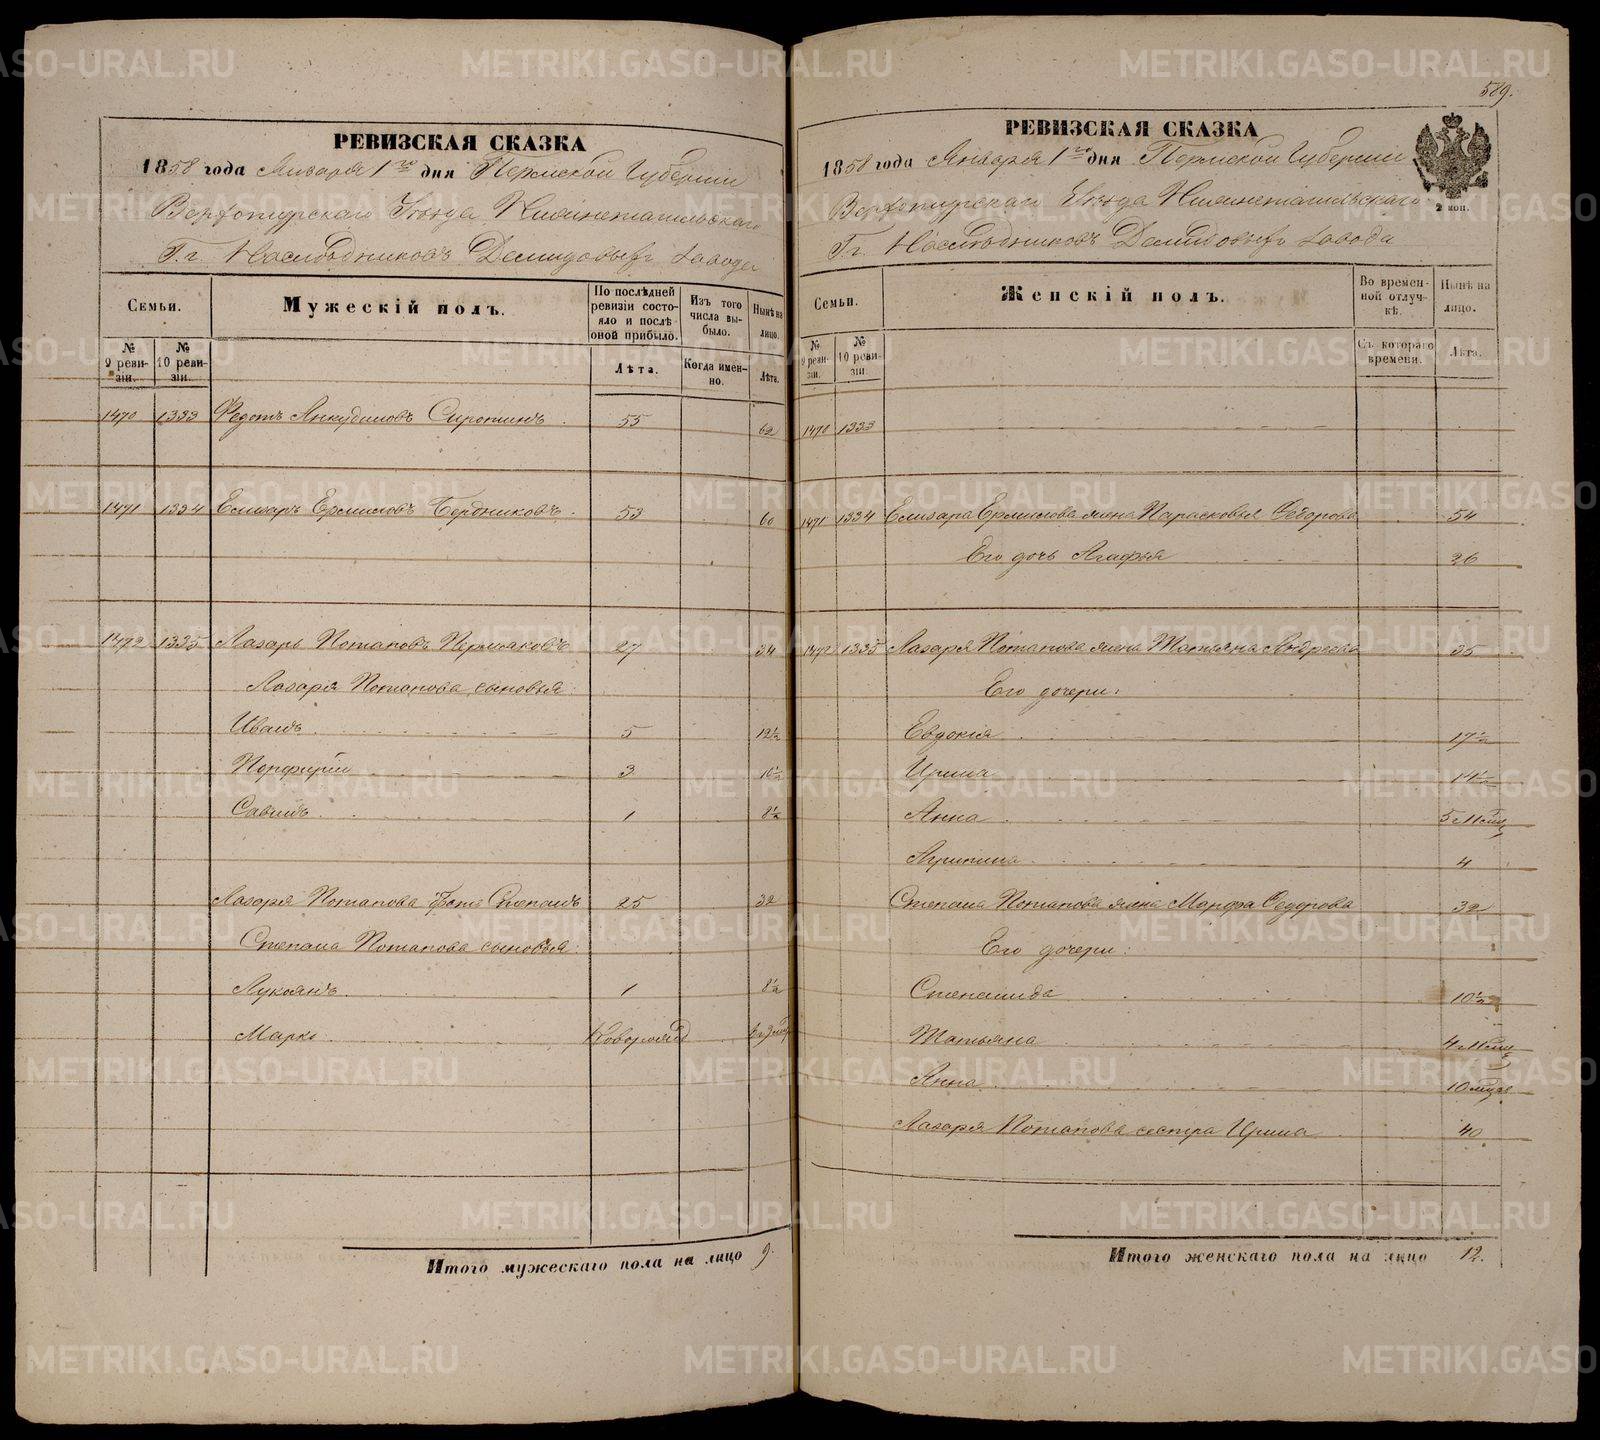 589.
РЕВИЗСКАЯ СКАЗКА
1858 года Января 1го дня Пермской Губерніи
Верхотурскаго Уѣзда Нижнетагильскаго
Г.г. Наслѣдниковъ Демидовыхъ завода
Семьи.
Мужескій полъ.
По послѣдней ревизіи состояло и послѣ оной прибыло.
Изъ того числа выбыло.
Нынѣ на лицо.
№ 9 ревизіи.
№ 10 ревизіи.
Лѣта.
Когда именно.
Лѣта.
1470 1333 Федотъ Анкудиновъ Сиротинъ 55 62
1471 1334 Елизаръ Ермиловъ Бердниковъ 53 60
1472 1335 Лазарь Потаповъ Пермяковъ 27 34
Лазаря Потапова сыновья:
Иванъ 5 12½
Порфирій 3 10½
Савинъ 1 8½
Лазаря Потапова братъ Степанъ 25 32
Степана Потапова сыновья:
Лукоянъ 1 8½
Марко Новорожд
Итого мужескаго пола на лицо 9.
РЕВИЗСКАЯ СКАЗКА
1858 года Января 1го дня Пермской Губерніи
Верхотурскаго Уѣзда Нижнетагильскаго
Г.г. Наслѣдниковъ Демидовыхъ завода
2 коп.
Семьи.
Женскій полъ.
Во временной отлучкѣ.
Нынѣ на лицо.
№ 9 ревизіи.
№ 10 ревизіи.
Съ котораго времени.
Лѣта.
1470 1333
1471 1334 Елизара Ермилова жена Парасковья Федорова 54
Его дочь Агафья 26
1472 1335 Лазаря Потапова жена Татьяна Андреева 35
Его дочери:
Евдокія 17½
Ирина 14½
Анна 5 Мсяц
Агрипина 4
Степана Потапова жена Марфа Федорова 32
Его дочери:
Степанида 10½
Татьяна 4 Мсяц
Анна 10
Лазаря Потапова сестра Ирина 40
Итого женскаго пола на лицо 12.
METRIKI.GASO-URAL.RU